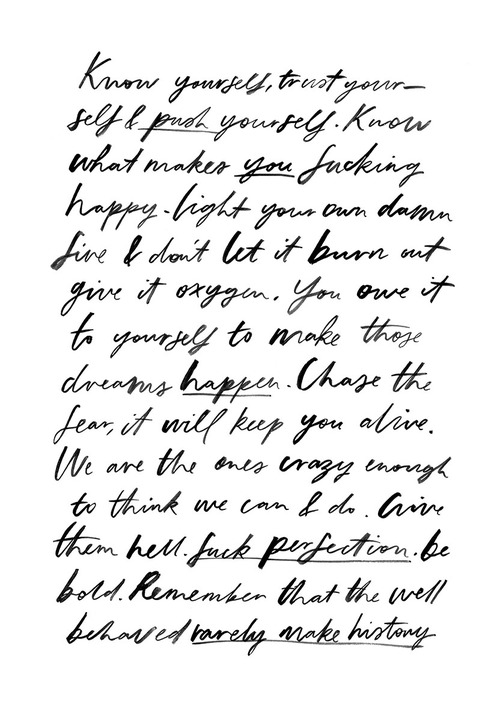 Know yourself, trust your-
self & push yourself. Know
what makes you fucking
happy. light your own damn
fire & don't let it burn out
give it oxygen. You owe it
to yourself to make those
dreams happen. Chase the
fear, it will keep you alive.
We are the ones crazy enough
to think we can & do. Give
them hell. fuck perfection. be
bold. Remember that the well
behaved rarely make history